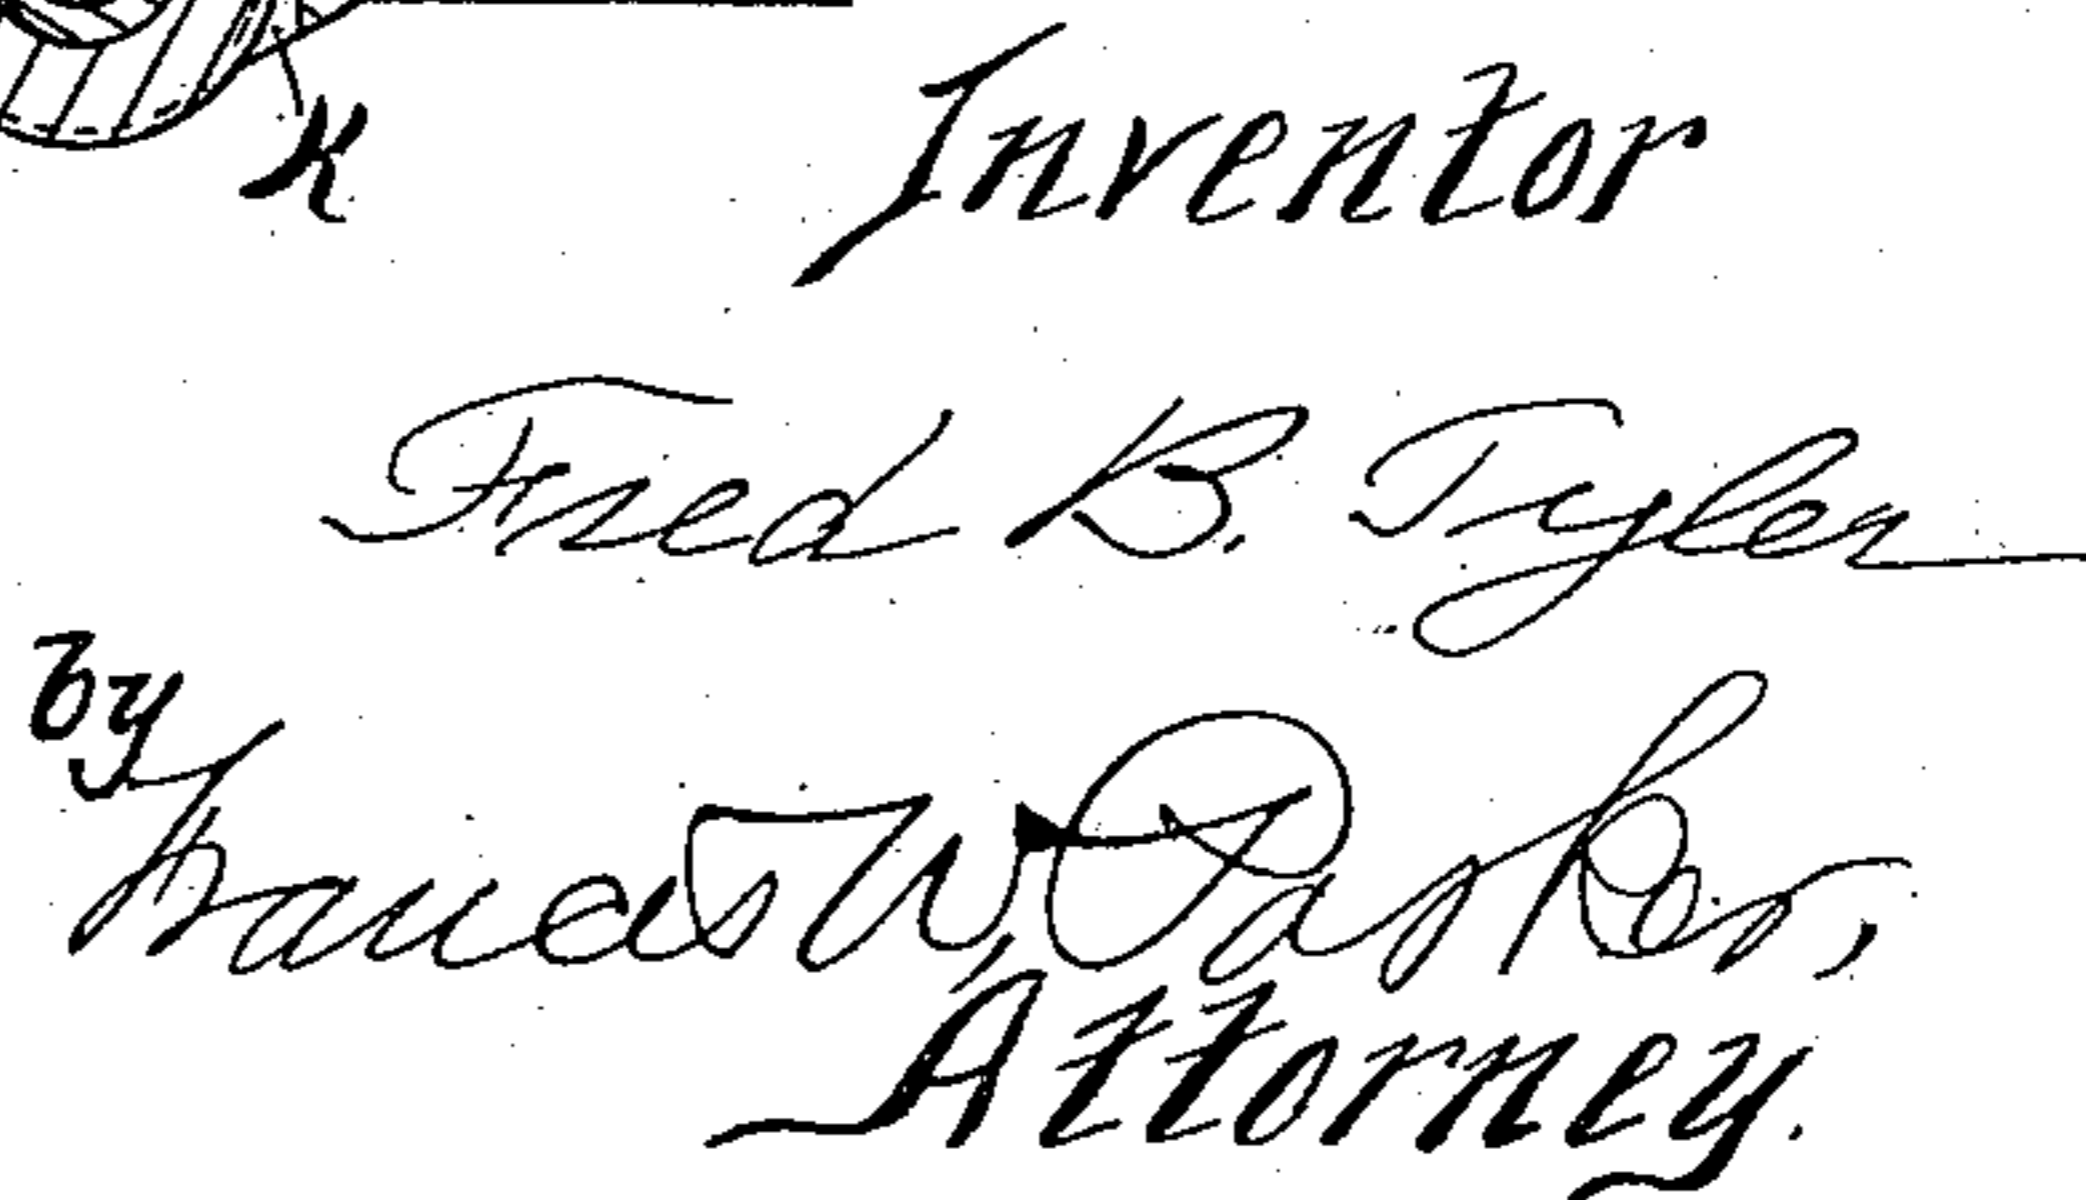 K
Inventor
Fred B. Tyler
by
Francis W. Parker,
Attorney.